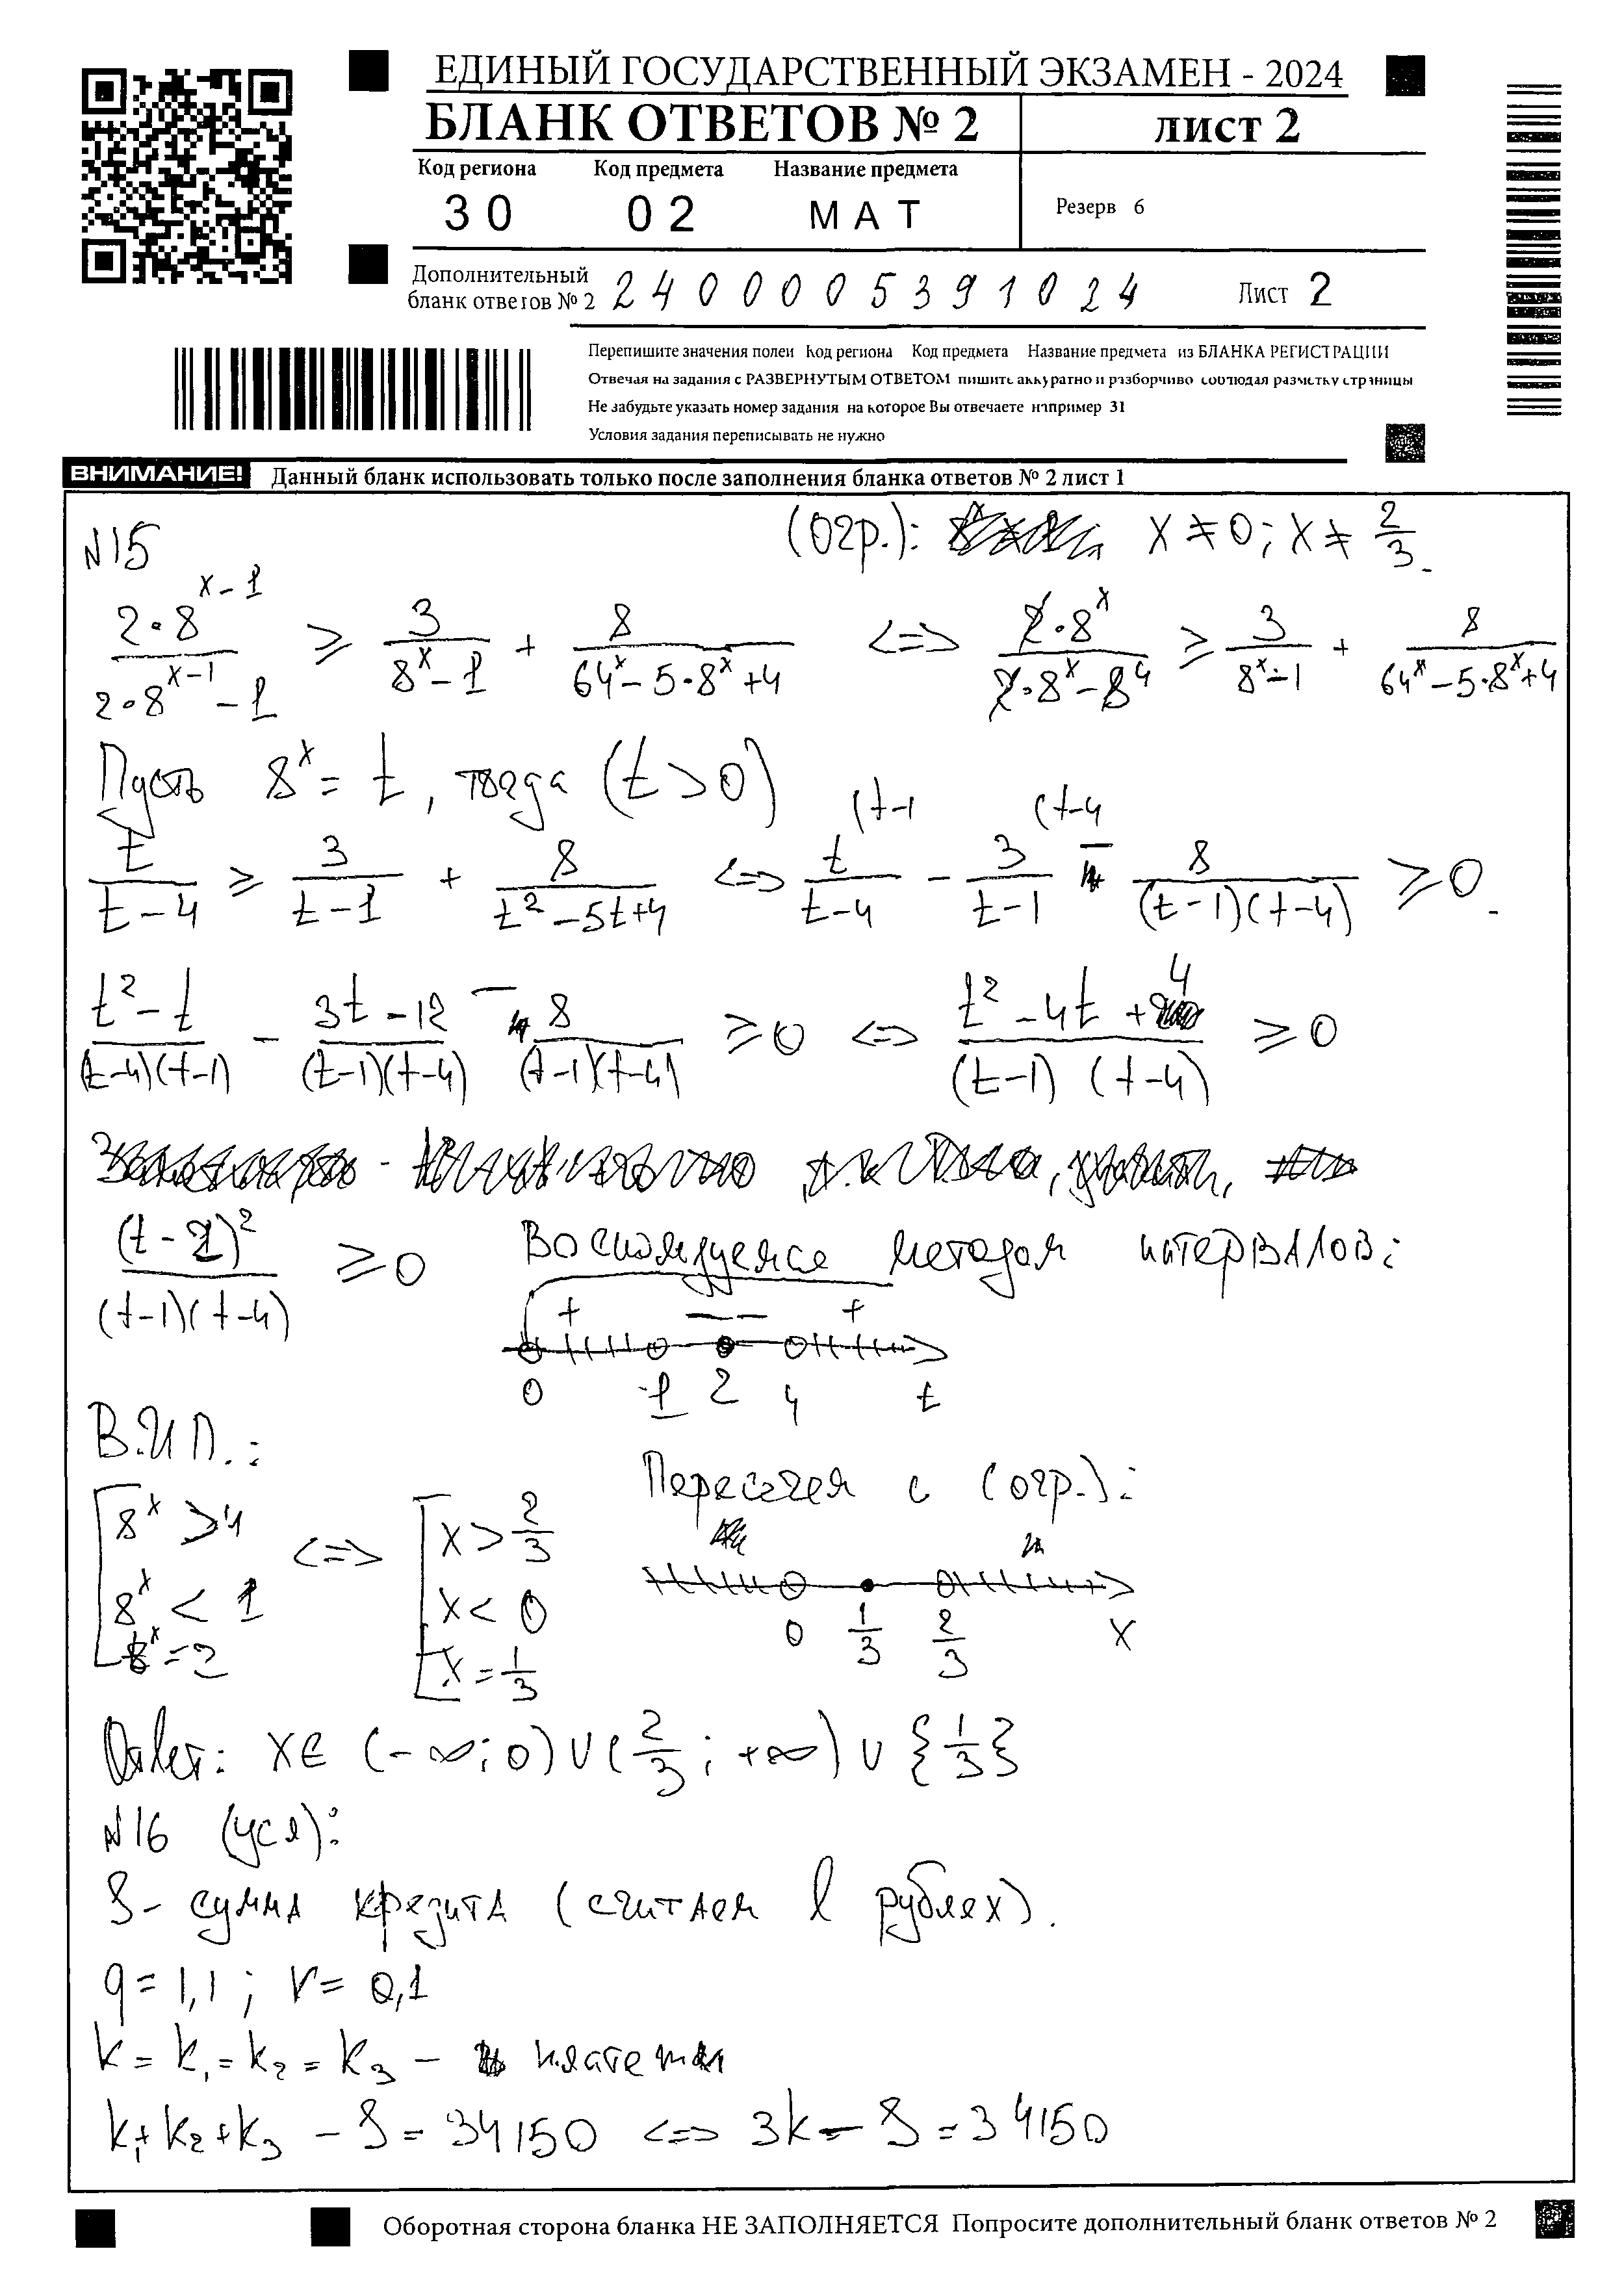 ЕДИНЫЙ ГОСУДАРСТВЕННЫЙ ЭКЗАМЕН - 2024
БЛАНК ОТВЕТОВ № 2 лист 2
Код региона Код предмета Название предмета
30 02 МАТ Резерв 6
Дополнительный бланк ответов № 2 2400005391024 Лист 2
Перепишите значения полей Код региона Код предмета Название предмета из БЛАНКА РЕГИСТРАЦИИ
Отвечая на задания с РАЗВЕРНУТЫМ ОТВЕТОМ пишите аккуратно и разборчиво соблюдая разметку страницы
Не забудьте указать номер задания на которое Вы отвечаете например 31
Условия задания переписывать не нужно
ВНИМАНИЕ! Данный бланк использовать только после заполнения бланка ответов № 2 лист 1
N15 (огр.): x ≠ 0; x ≠ 2/3.
(2·8^(x-1))/(2·8^(x-1) - 1) ≥ 3/(8^x - 1) + 8/(64^x - 5·8^x + 4) <=> (2·8^x)/(2·8^x - 8 4) ≥ 3/(8^x - 1) + 8/(64^x - 5·8^x + 4)
Пусть 8^x = t, тогда (t > 0)
(t-1 (t-4
t/(t-4) ≥ 3/(t-1) + 8/(t² - 5t + 4) <=> t/(t-4) - 3/(t-1) - 8/((t-1)(t-4)) ≥ 0.
(t² - t)/((t-4)(t-1)) - (3t - 12)/((t-1)(t-4)) - 8/((t-1)(t-4)) ≥ 0 <=> (t² - 4t + 4)/((t-1)(t-4)) ≥ 0
(t - 2)²/((t-1)(t-4)) ≥ 0 Воспользуемся методом интервалов:
+ - - +
0 1 2 4 t
В.И.П.:
Пересечем с (огр.):
[ 8^x > 4 <=> [ x > 2/3
8^x < 1 x < 0
8^x = 2 x = 1/3
0 1/3 2/3 x
Ответ: x ∈ (-∞; 0) ∪ (2/3; +∞) ∪ {1/3}
N16 (усл):
S - сумма кредита (считаем в рублях).
q = 1,1 ; r = 0,1
k = k₁ = k₂ = k₃ - платежи
k₁ + k₂ + k₃ - S = 34150 <=> 3k - S = 34150
Оборотная сторона бланка НЕ ЗАПОЛНЯЕТСЯ Попросите дополнительный бланк ответов № 2